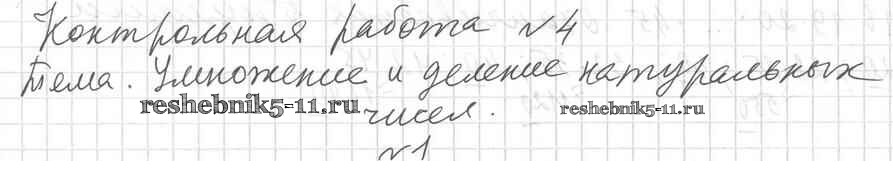 Контрольная работа №4
Тема. Умножение и деление натуральных
reshebnik5-11.ru чисел. reshebnik5-11.ru
№1